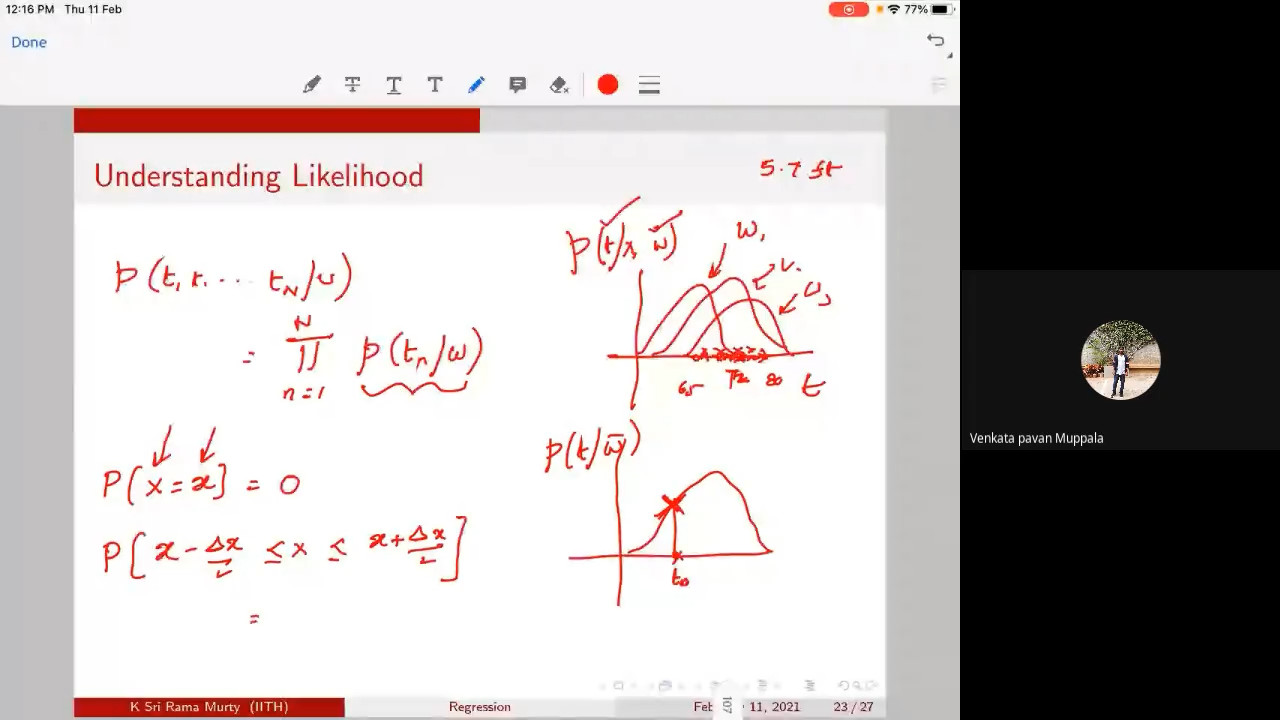 12:16 PM Thu 11 Feb
77%
Done
Understanding Likelihood
5.7 ft
p(t/x, w̄)
w₁
p(t₁ t₂ ... t_N/w)
N
= ∏ p(t_n/w)
n=1
65 72 80 t
p(t/w̄)
P[X = x] = 0
P[x - Δx/2 ≤ X ≤ x + Δx/2]
=
t₀
K Sri Rama Murty (IITH)
Regression
11, 2021
23 / 27
107
Venkata pavan Muppala